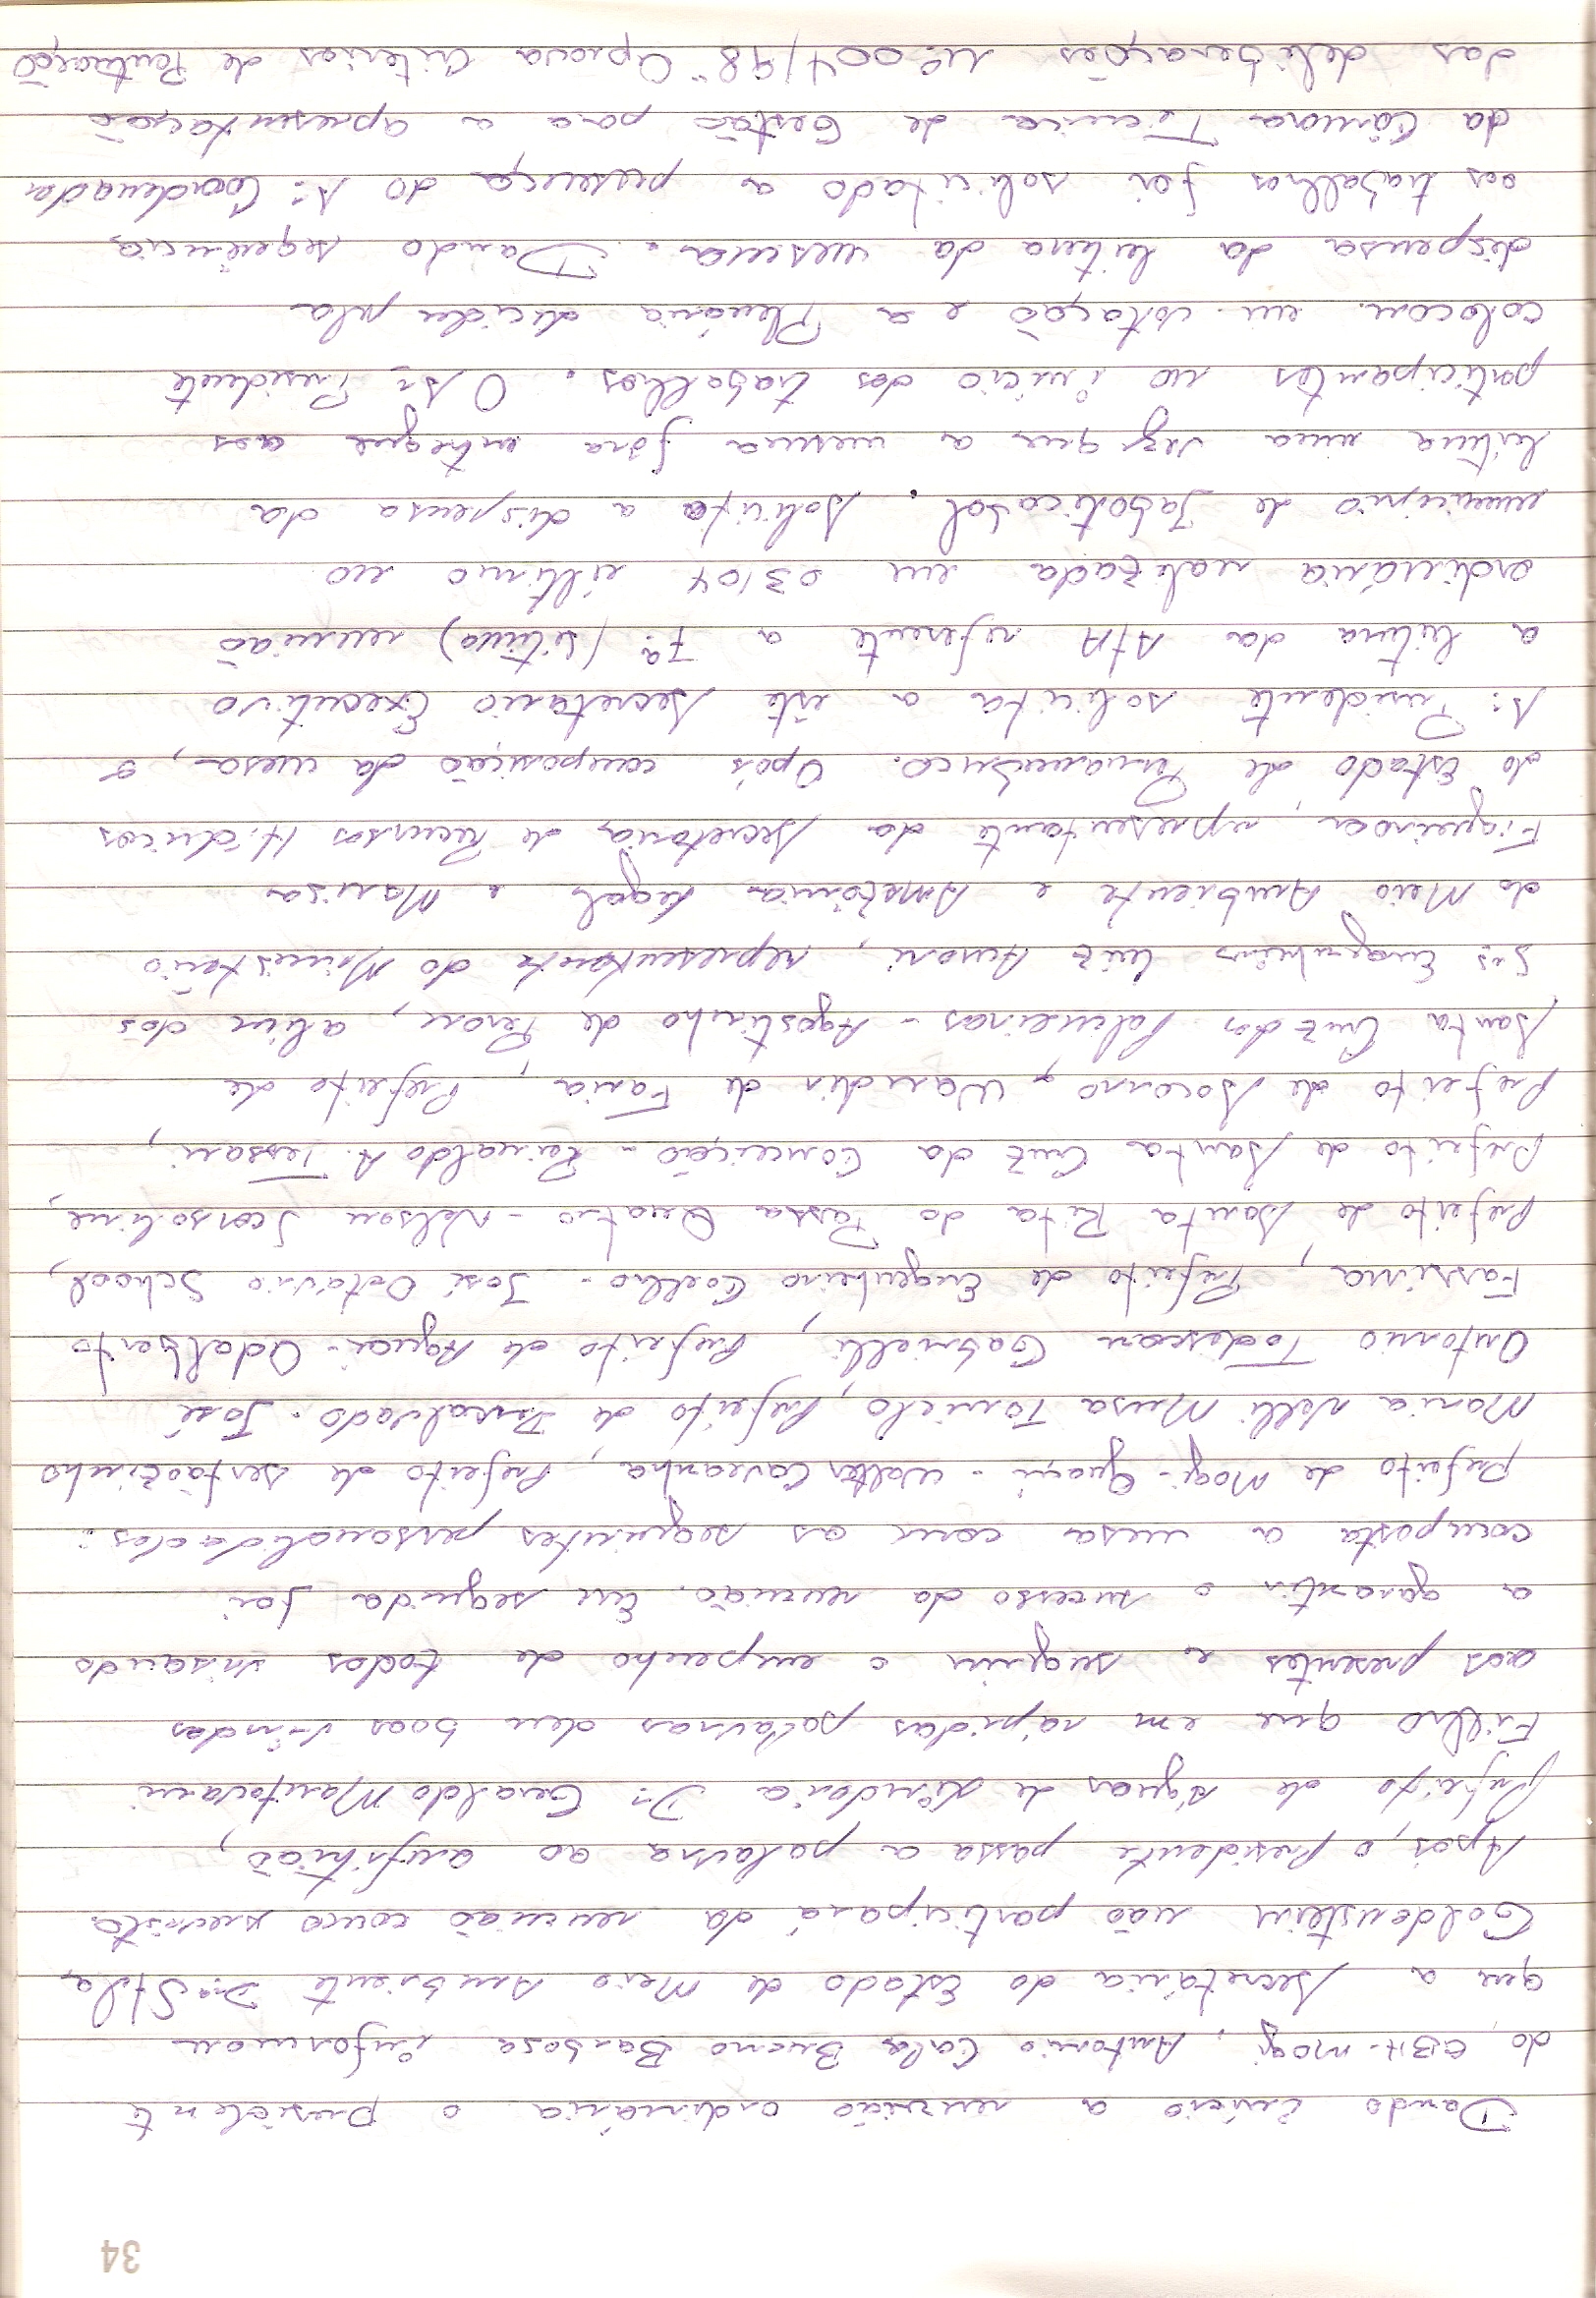 34
Dando início a reunião ordinária o presidente
do CBH-Mogi, Antonio Carlos Bueno Barbosa informou
que a Secretária do Estado de Meio Ambiente Drª Stela
Goldenstein não participará da reunião como previsto.
Após, o Presidente passa a palavra ao anfitrião,
Prefeito de Águas de Lindóia Dr. Geraldo Mantovani
Filho que em rápidas palavras deu boas vindas
aos presentes e sugeriu o empenho de todos visando
a garantir o sucesso da reunião. Em seguida foi
composta a mesa com as seguintes personalidades:
Prefeito de Mogi-Guaçú - Walter Caveanha, Prefeito de Sertãozinho
Maria Nelli Musa Tonielo, Prefeito de Descalvado - José
Antonio Todescan Gabrielli, Prefeito de Aguaí - Adalberto
Fassina, Prefeito de Engenheiro Coelho - José Octávio Scholl,
Prefeito de Santa Rita do Passa Quatro - Nelson Scorsolini,
prefeito de Santa Cruz da Conceição - Reinaldo A. Tessari,
prefeito de Socorro, Wandir de Faria, Prefeito de
Santa Cruz das Palmeiras - Agostinho de Peron, além dos
Srs Engenheiros Luiz Amori, representante do Ministério
do Meio Ambiente e Amazônia Legal e Marisa
Figueiroa, representante da Secretaria de Recursos Hídricos
do Estado de Pernambuco. Após composição da mesa, o
Sr. Presidente solicita a este Secretario Executivo
a leitura da ATA referente a 7ª (sétima) reunião
ordinária realizada em 03/04 último no
município de Jaboticabal. Solicita a dispensa da
leitura uma vez que a mesma fora entregue aos
participantes no início dos trabalhos. O Sr. Presidente
colocou em votação e a Plenária decidiu pela
dispensa da leitura da mesma. Dando sequência
aos trabalhos foi solicitado a presença do Sr. Coordenador
da Câmara Técnica de Gestão para a apresentação
das deliberações nº 004/98 "Aprova Criterios de Pontuação